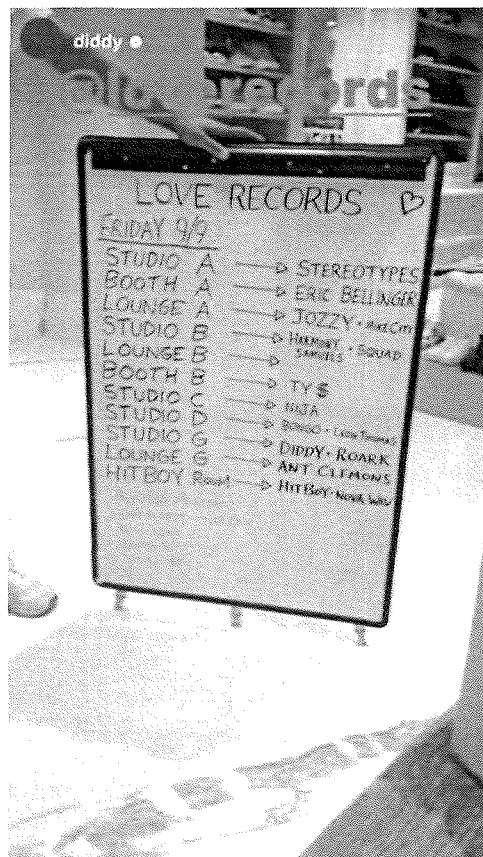 diddy
records
LOVE RECORDS ♡
FRIDAY 9/9
STUDIO A → STEREOTYPES
BOOTH A → ERIC BELLINGER
LOUNGE A → JOZZY •
STUDIO B → HARMONY SAMUELS • SQUAD
LOUNGE B →
BOOTH B → TY $
STUDIO C → NIJA
STUDIO D → BONGO • LEON THOMAS
STUDIO G → DIDDY • ROARK
LOUNGE G → ANT CLEMONS
HITBOY ROOM → HITBOY • NOVA WAV